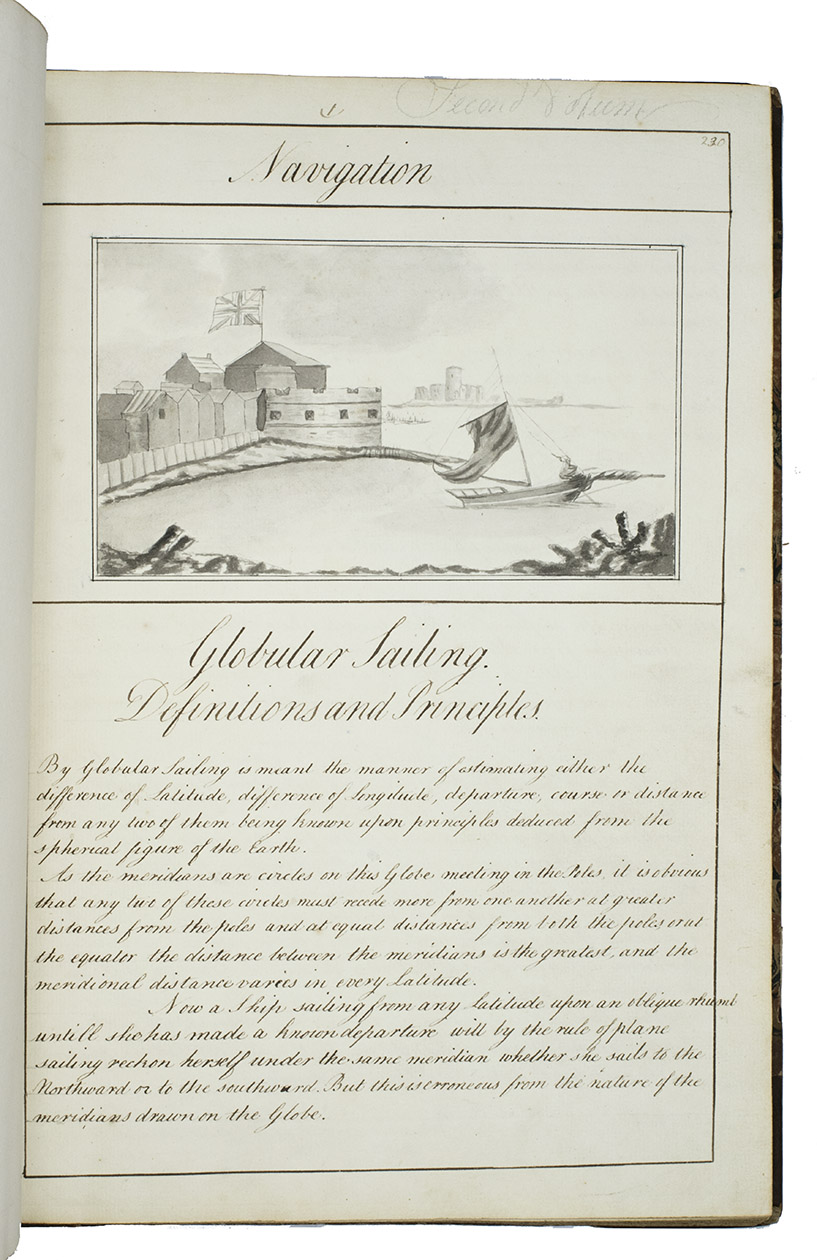 Second Volume
230
Navigation
Globular Sailing.
Definitions and Principles.
By Globular Sailing is meant the manner of estimating either the
difference of Latitude, difference of Longitude, departure, course or distance
from any two of them being known upon principles deduced from the
spherical figure of the Earth.
As the meridians are circles on this Globe meeting in the Poles, it is obvious
that any two of these circles must recede more from one another at greater
distances from the poles and at equal distances from both the poles or at
the equator the distance between the meridians is the greatest, and the
meridional distance varies in every Latitude.
Now a Ship sailing from any Latitude upon an oblique rhumb
untill she has made a known departure will by the rule of plane
sailing reckon herself under the same meridian whether she sails to the
Northward or to the southward. But this is erroneous from the nature of the
meridians drawn on the Globe.